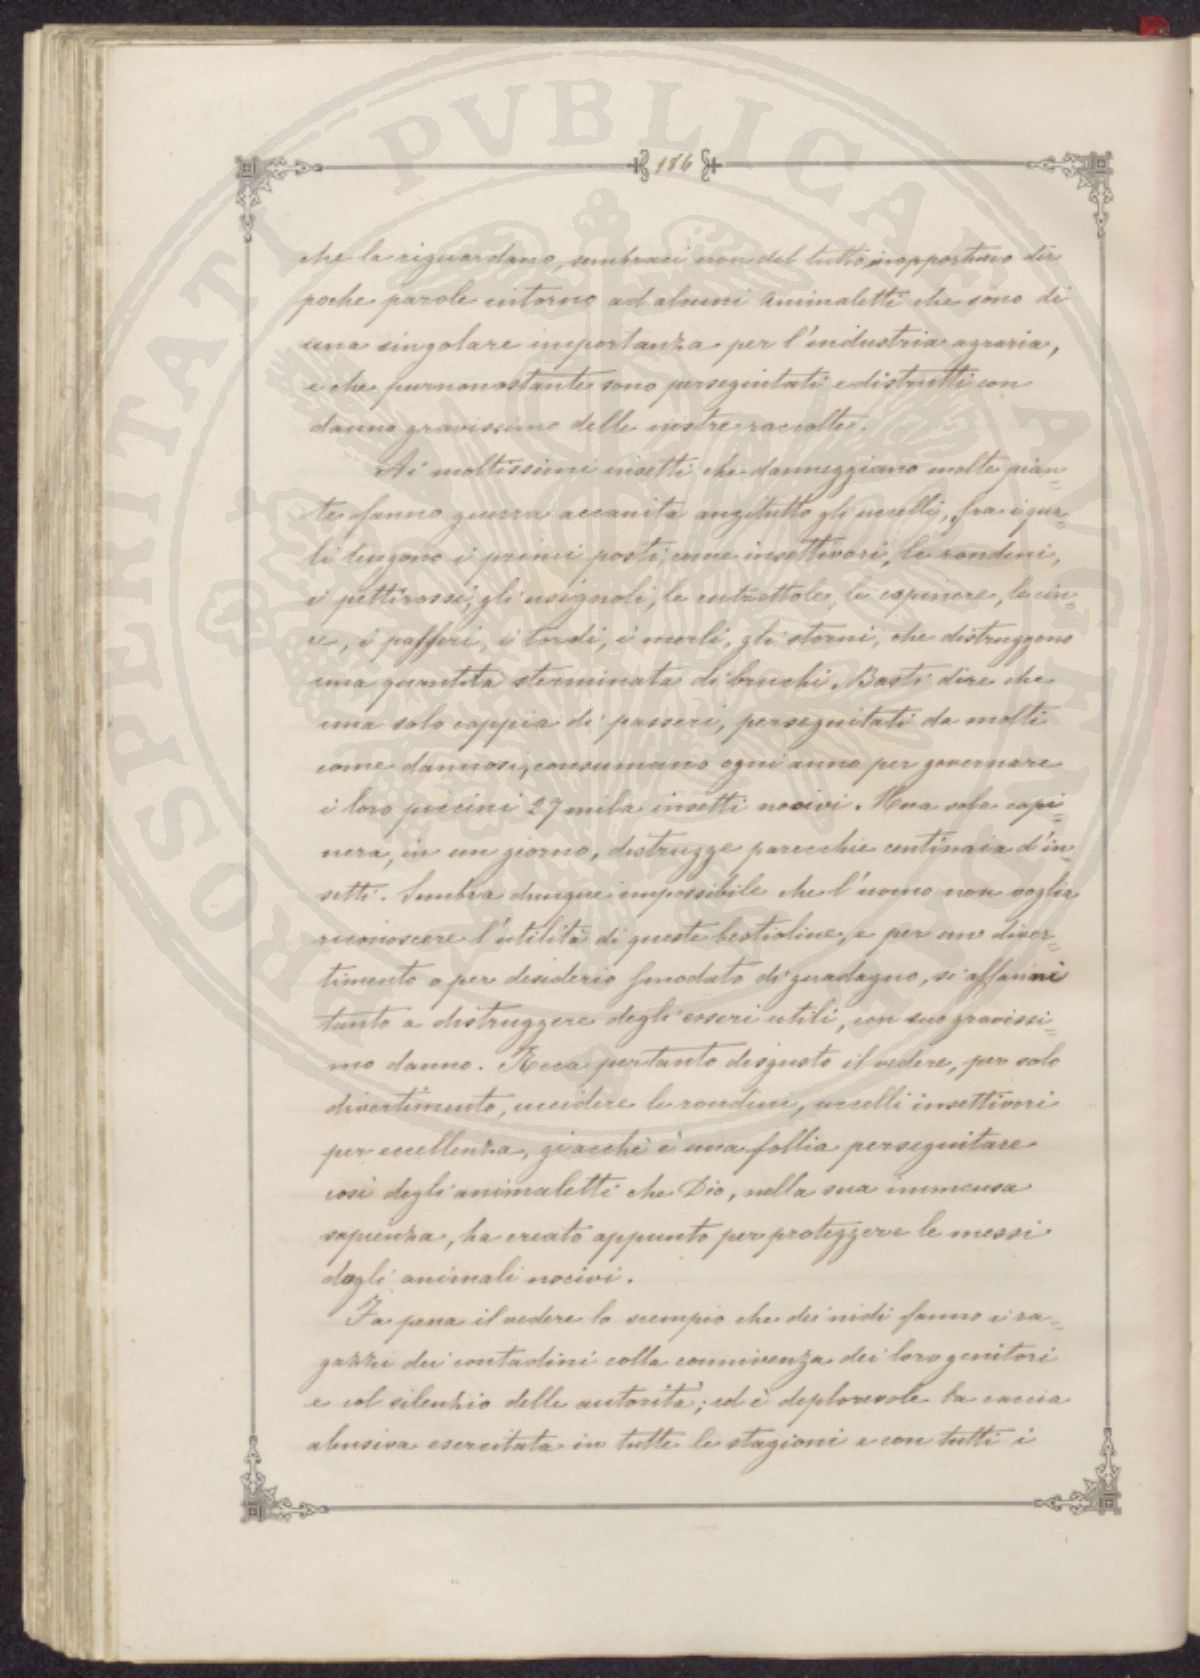 186
che la riguardano, sembrami non del tutto inopportuno dir
poche parole intorno ad alcuni animaletti che sono di
una singolare importanza per l'industria agraria,
e che purnonostante sono perseguitati e distrutti con
danno gravissimo delle nostre raccolte.
Ai moltissimi insetti che danneggiano molte pian=
te fanno guerra accanita anzitutto gli uccelli, fra i qua=
li tengono i primi posti, come insettivori, le rondini,
i pettirossi, gli usignoli, le cutrettole, le capinere, le cin=
ce, i passeri, i tordi, i merli, gli storni, che distruggono
una quantità sterminata di bruchi. Basti dire che
una sola coppia di passeri, perseguitati da molti
come dannosi, consumano ogni anno per governare
i loro piccini 27 mila insetti nocivi. Una sola capi=
nera, in un giorno, distrugge parecchie centinaia d'in=
setti. Sembra dunque impossibile che l'uomo non voglia
riconoscere l'utilità di queste bestioline, e per suo diver=
timento o per desiderio smodato di guadagno, si affanni
tanto a distruggere degli esseri utili, con suo gravissi=
mo danno. Reca pertanto disgusto il vedere, per solo
divertimento, uccidere le rondini, uccelli insettivori
per eccellenza, giacchè è una follia perseguitare
così degli animaletti che Dio, nella sua immensa
sapienza, ha creato appunto per proteggere le messi
dagli animali nocivi.
Fa pena il vedere lo scempio che dei nidi fanno i ra=
gazzi dei contadini colla connivenza dei loro genitori
e col silenzio delle autorità; ed è deplorevole la caccia
abusiva esercitata in tutte le stagioni e con tutti i
PROSPERITATI PVBLICAE AVGENDAE